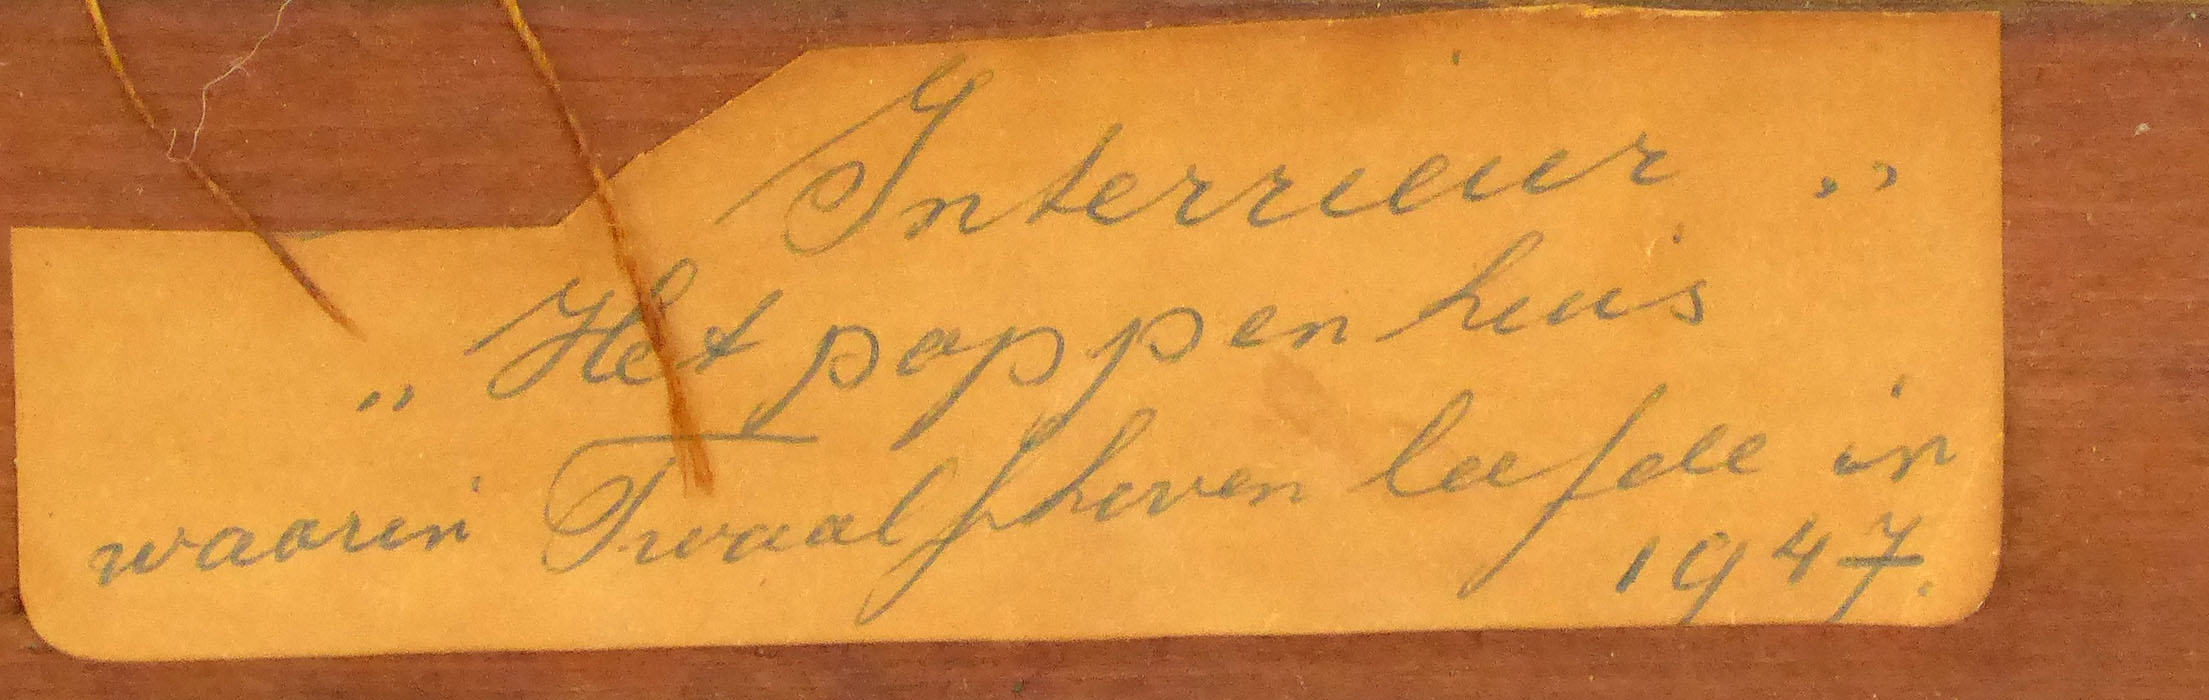 Interrieur
„ Het poppenhuis ”
waarin Twaalfhoven leefde in
1947.